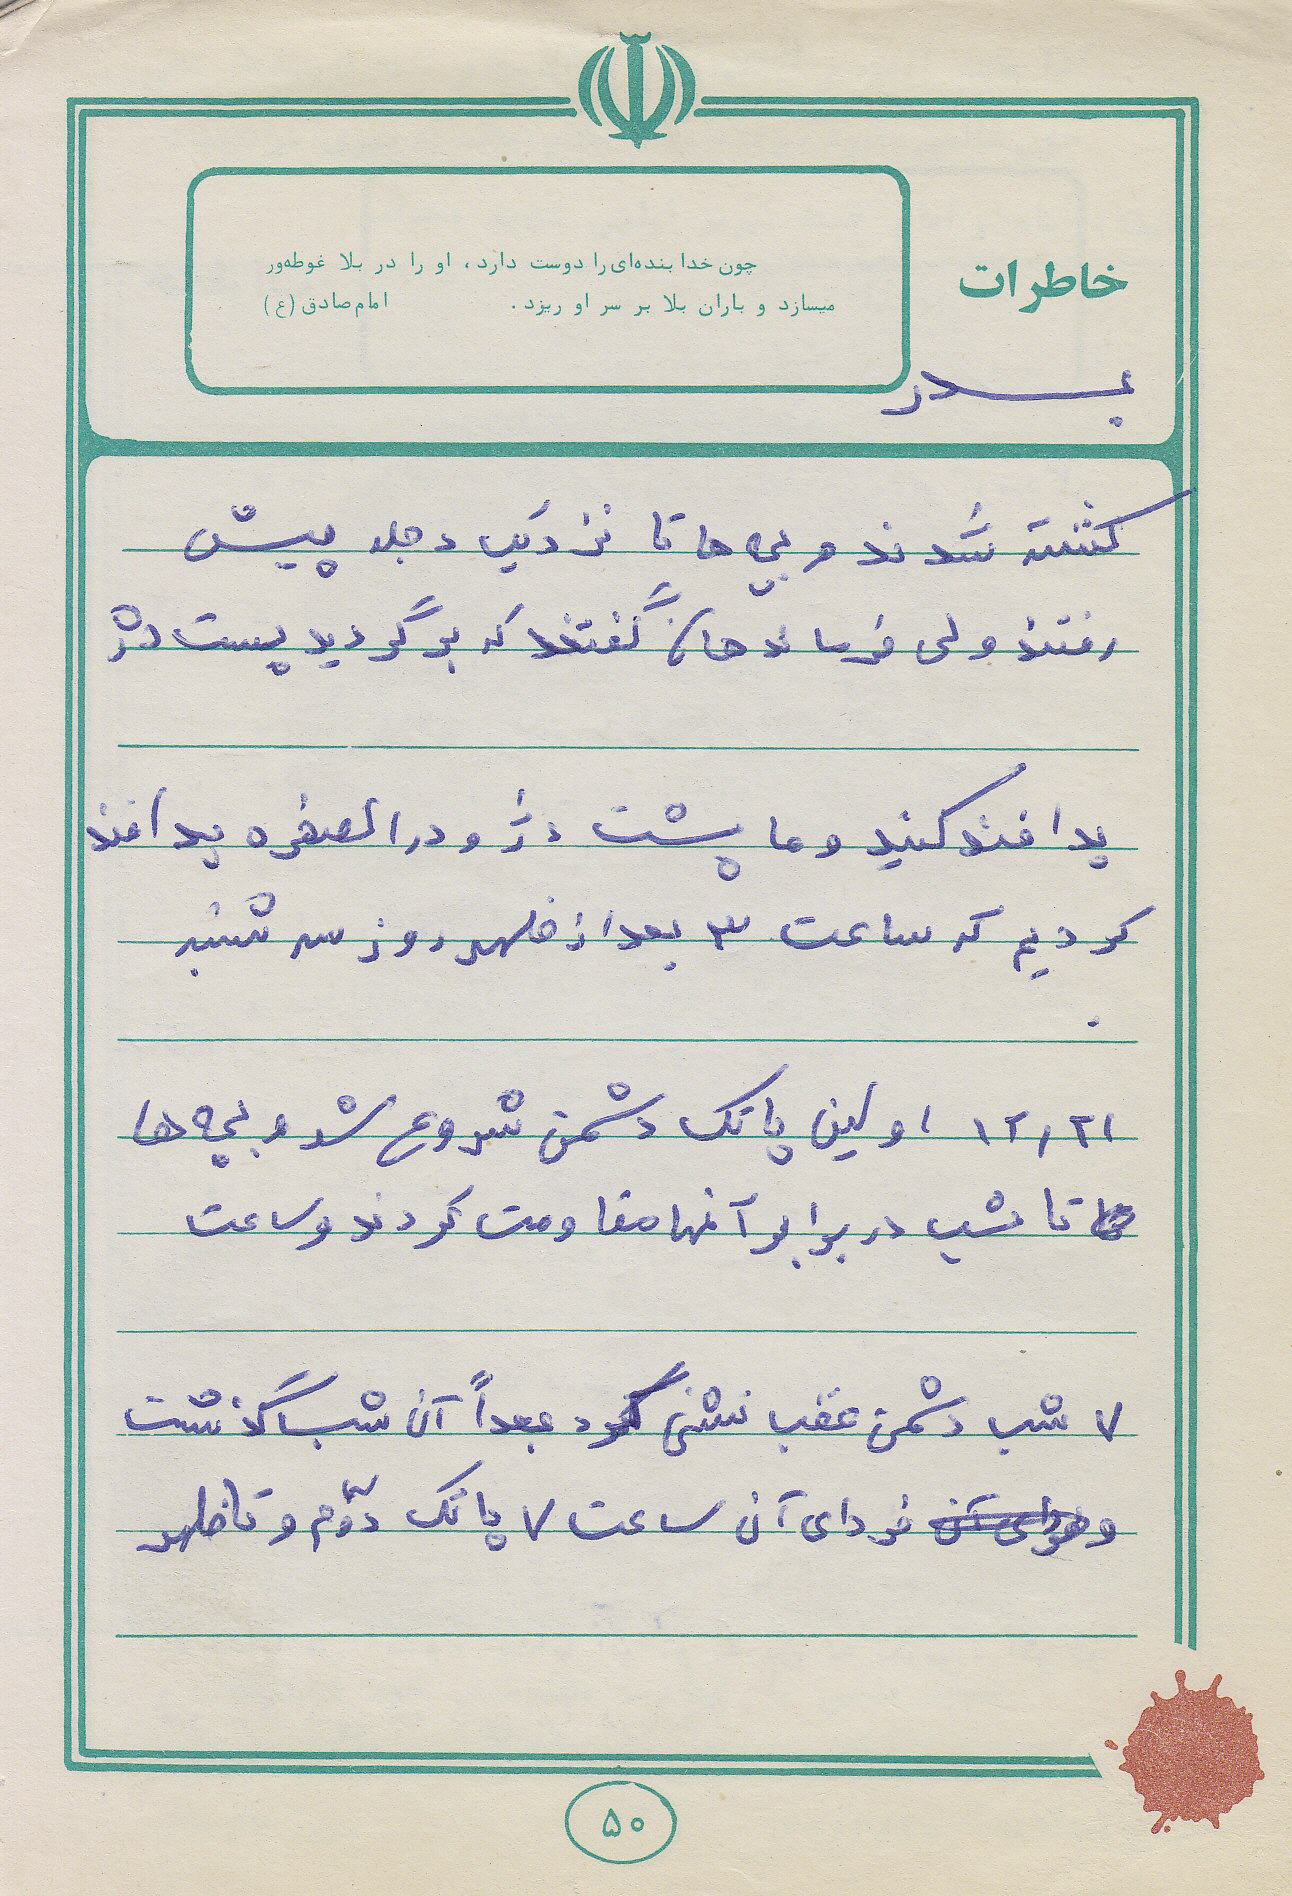 خاطرات
چون خدا بنده‌ای را دوست دارد، او را در بلا غوطه‌ور
میسازد و باران بلا بر سر او ریزد. امام صادق (ع)
بدر
کشته شدند و بچه ها تا نزدیک دجله پیش
رفتند ولی فرماندهان گفتند که برگردید پست دژ
پدافند کنید و ما پشت دژ و در الصخره پدافند
کردیم که ساعت ۳ بعد از ظهر روز سه شنبه
۱۲٫۲۱ اولین پاتک دشمن شروع شد و بچه ها
تا شب در برابر آنها مقاومت کردند و ساعت
۷ شب دشمن عقب نشنی کرد بعداً آن شب گذشت
و فردای آن فردای آن ساعت ۷ پاتک دوّم و تا ظهر
۵۰